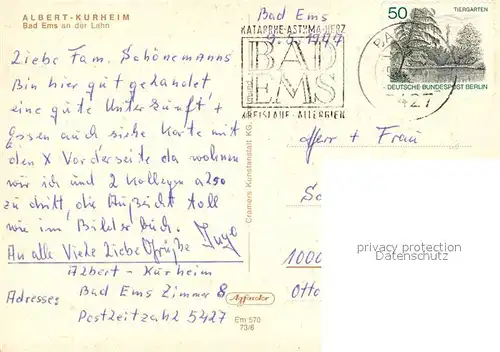 ALBERT-KURHEIM
Bad Ems an der Lahn
Bad Ems
KATARRHE·ASTHMA·HERZ
BAD
EMS
KREISLAUF·ALLERGIEN
50
TIERGARTEN
DEUTSCHE BUNDESPOST BERLIN
5427
Liebe Fam. Schönemanns
Bin hier gut gelandet
eine gute Unterkunft +
Essen auch siehe Karte mit
den X Vorderseite da wohnen
wir ich und 2 Kollegen also
zu dritt, die Aussicht toll
wie im Bilderbuch.
An alle Viele Liebe Grüße
Albert-Kurheim
Adresse: Bad Ems Zimmer 8
Postleitzahl 5427
Herr + Frau
1000
Otto
Cramers Kunstanstalt KG.
Em 570
73/6
privacy protection
Datenschutz